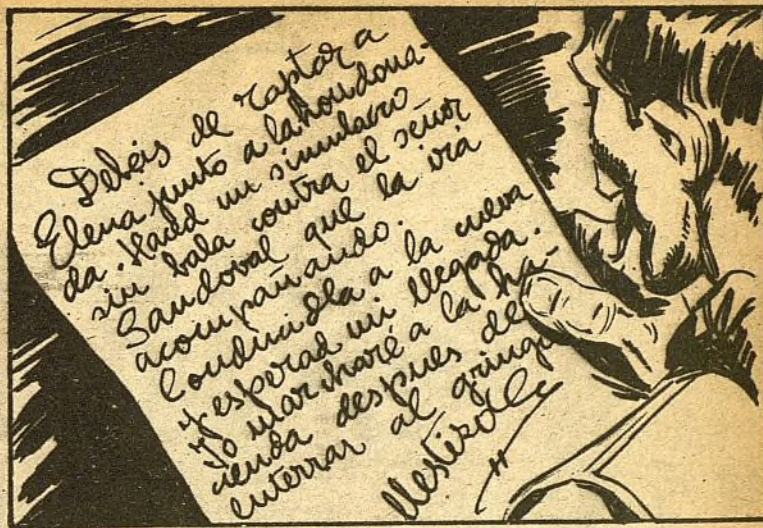 Debéis de raptar a
Elena junto a la hondona-
da. Haced un simulacro
sin bala contra el señor
Sandoval que la irá
acompañando.
Conducidla a la cueva
y esperad mi llegada.
Yo marcharé a la ha-
cienda despues de
enterrar al gringo
Mestizo